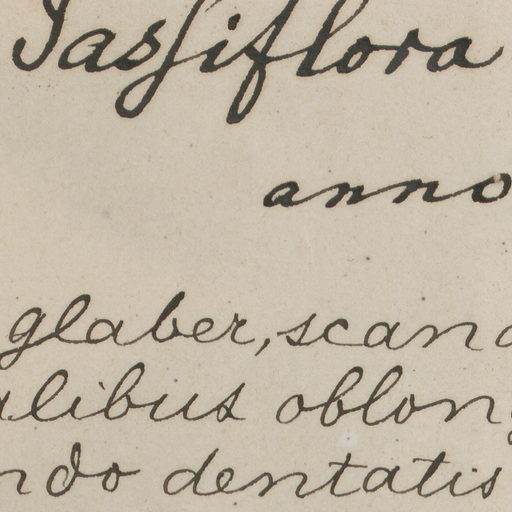 Passiflora
anno
glaber, scand
alibus oblong
ndo dentatis